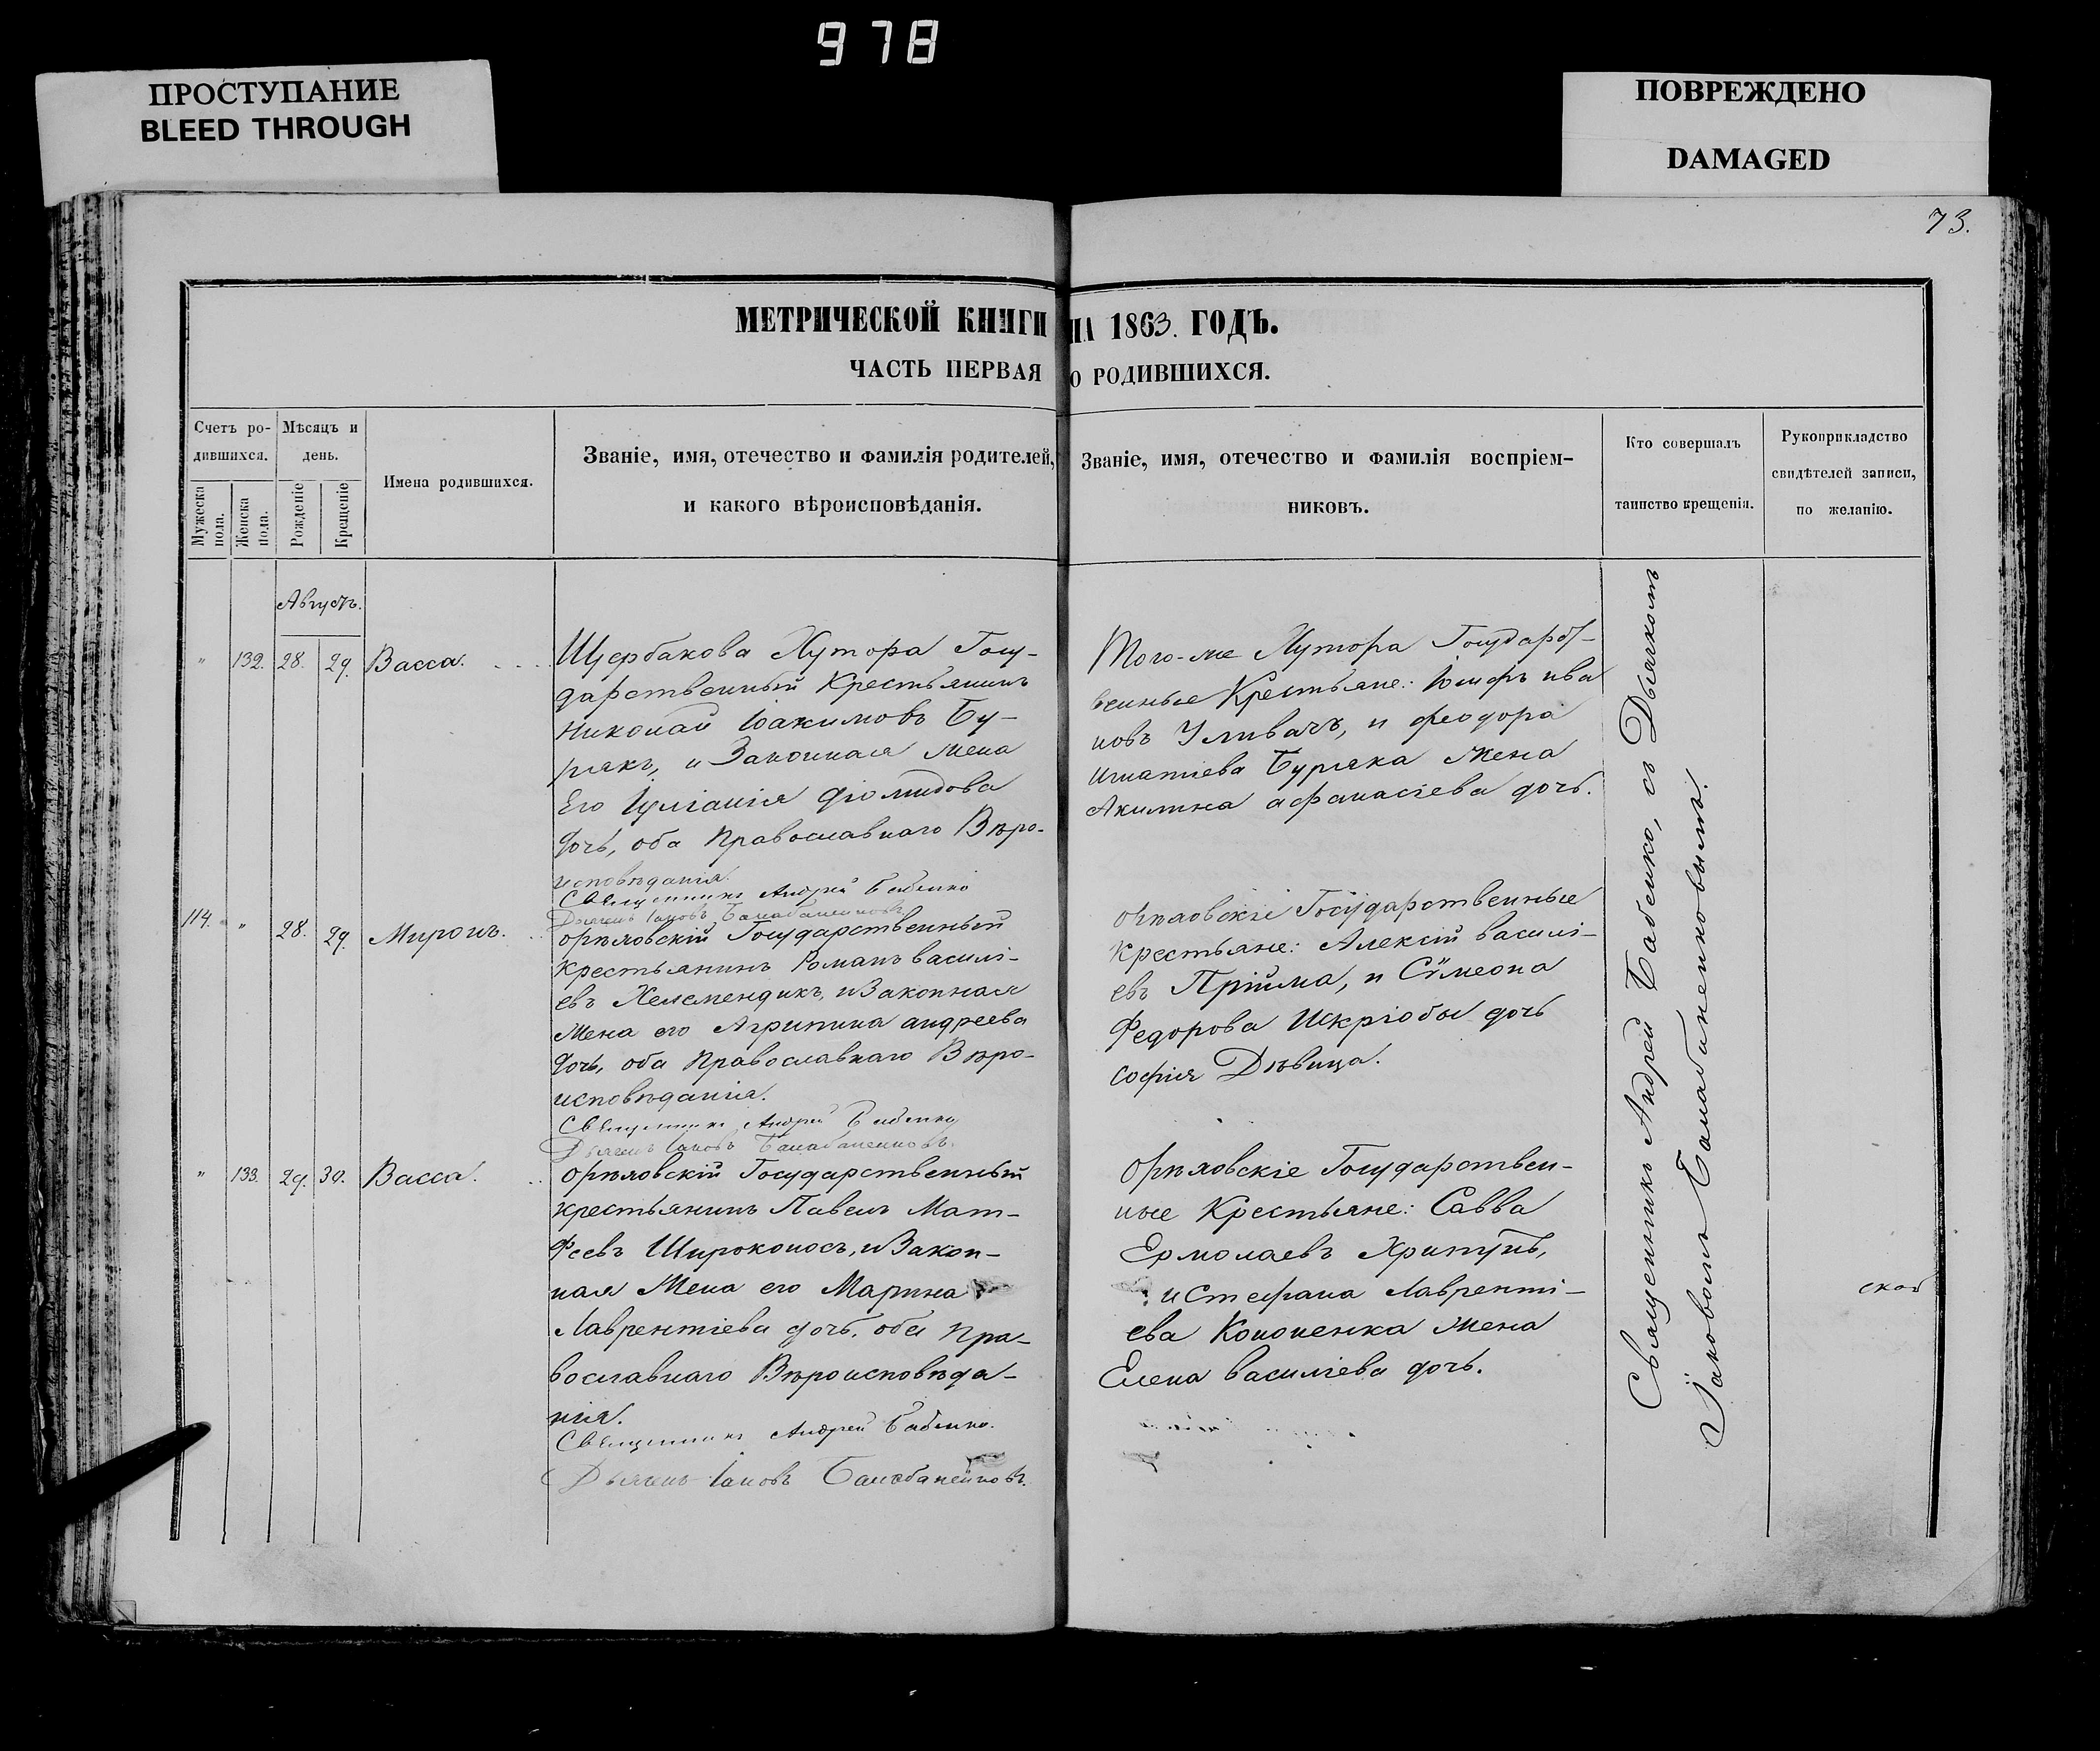 978
ПРОСТУПАНИЕ
BLEED THROUGH
ПОВРЕЖДЕНО
DAMAGED
73.
МЕТРИЧЕСКОЙ КНИГИ НА 1863. ГОДЪ.
ЧАСТЬ ПЕРВАЯ О РОДИВШИХСЯ.
Счетъ ро-
дившихся.
Мужеска
пола.
Женска
пола.
Мѣсяцъ и
день.
Рожденіе
Крещеніе
Имена родившихся.
Званіе, имя, отечество и фамилія родителей,
и какого вѣроисповѣданія.
Званіе, имя, отечество и фамилія воспріем-
никовъ.
Кто совершалъ
таинство крещенія.
Рукоприкладство
свидѣтелей записи,
по желанію.
Августъ.
" 132. 28. 29. Васса.
Щербакова Хутора Госу-
дарственный Крестьянинъ
Николай Іоакимовъ Бу-
рякъ, и Законная жена
Его Іуліанія
дочь, оба Православнаго Вѣро-
исповѣданія.
Священникъ Андрей Бабенко
Дьячекъ Іаковъ Балабаненковъ
Того-же Хутора Государст-
венные Крестьяне: Іосифъ ива
новъ и феодора
игнатіева Буряка жена
Акилина афанасіева дочь.
114. " 28. 29. Миронъ.
Орѣловскій Государственный
Крестьянинъ Романъ васили-
евъ Желемендикъ, и Законная
жена его Агрипина андреева
дочь, оба Православнаго Вѣро-
исповѣданія.
Священникъ Андрей Бабенко
Дьячекъ Іаковъ Балабаненковъ.
Орѣловскіе Государственные
крестьяне: Алексій василі-
евъ Прійма, и Сѵмеона
Федорова Шкріобы дочь
софія Дѣвица.
" 133. 29. 30. Васса.
Орѣловскій Государственный
крестьянинъ Павелъ Мат-
феевъ Широконосъ, и Закон-
ная жена его Марина
Лаврентіева дочь, оба пра-
вославнаго Вѣроисповѣда-
нія.
Священникъ Андрей Бабенко.
Дьячекъ Іаковъ Балабаненковъ.
Орѣловскіе Государствен-
ные Крестьяне: Савва
Ермолаевъ Хрипунъ,
и Стефана Лавренті-
ева Кононенка жена
Елена василіева дочь.
Священникъ Андрей Бабенко, съ Дьячкомъ
Іаковомъ Балабаненковымъ.